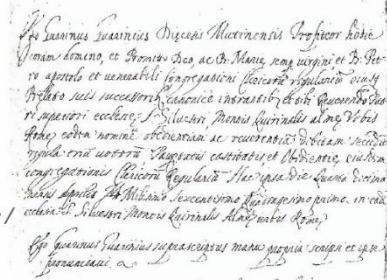 Ego Guarinus Guarinius Diocesis Mutinensis Profiteor hodie
coram domino, et Promitto Deo, ac B. Mariæ semp virgini, et B. Pet-
ro apostolo et venerabili congregationi Clericorum regularium
Prelato suis successorib canonice intrantib et tibi Reverendo Pat-
ri superiori ecclesie S. Silvestri Montis Quirinalis almæ Urbis
Romę eodem nomine obedientiam ac reverentiā debitam
regula trium votorū Paupertatis castitatis et Obedientię eiusdem
congregationis Clericorū Regulariū. Hac ipsa die Quinta decima
mensis Aprilis Millesimo Sexcentesimo Quadragesimo primo in
ecclesia S. Silvestri Montis Quirinalis Almę urbis Romę
Ego Guarinus Guarinius suprascriptus manu propria scripsi et ipse
pronunciavi